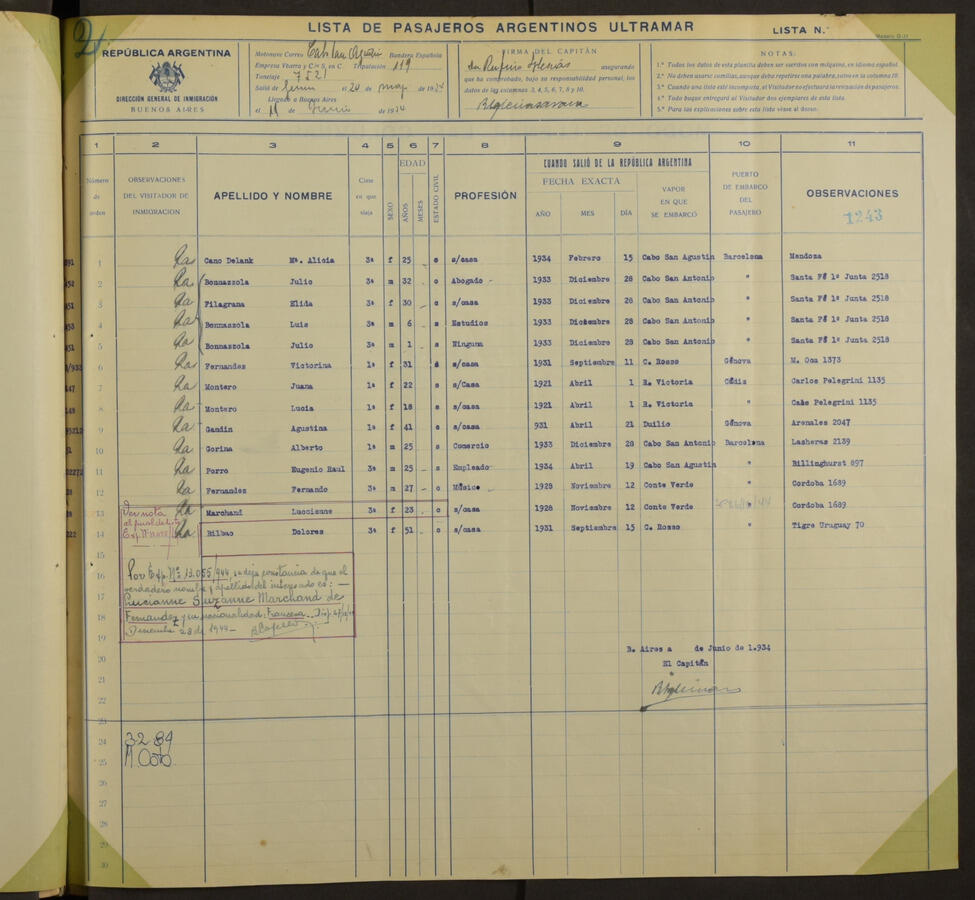 2
LISTA DE PASAJEROS ARGENTINOS ULTRAMAR
LISTA N.°
REPÚBLICA ARGENTINA
DIRECCIÓN GENERAL DE INMIGRACIÓN
BUENOS AIRES
Motonave Correo Bandera Española
Empresa Ybarra y Cía S. en C. Tripulación 119
Tonelaje 7521
Salió de el 20 de de 1934
Llegado a Buenos Aires
el 11 de Junio de 1934
FIRMA DEL CAPITÁN
Rufino Iglesias asegurando
que ha comprobado, bajo su responsabilidad personal, los
datos de las columnas 3, 4, 5, 6, 7, 8 y 10.
NOTAS:
1.ª Todos los datos de esta planilla deben ser escritos con máquina, en idioma español.
2.ª No deben usarse comillas, aunque deba repetirse una palabra, salvo en la columna 10.
3.ª Cuando una lista esté incompleta, el Visitador no efectuará la revisación de pasajeros.
4.ª Todo buque entregará al Visitador dos ejemplares de esta lista.
5.ª Para las explicaciones sobre esta lista véase al dorso.
1 2 3 4 5 6 7 8 9 10 11
Número de orden
OBSERVACIONES DEL VISITADOR DE INMIGRACIÓN
APELLIDO Y NOMBRE
Clase en que viaja
SEXO
EDAD
AÑOS
MESES
ESTADO CIVIL
PROFESIÓN
CUANDO SALIÓ DE LA REPÚBLICA ARGENTINA
FECHA EXACTA
AÑO MES DÍA
VAPOR EN QUE SE EMBARCÓ
PUERTO DE EMBARCO DEL PASAJERO
OBSERVACIONES
1243
1 Cano Delank Mª. Alicia 3ª f 25 c s/casa 1934 Febrero 15 Cabo San Agustin Barcelona Mendoza
2 Bonnazzola Julio 3ª m 32 c Abogado 1933 Diciembre 28 Cabo San Antonio " Santa Fé 1º Junta 2518
3 Filagrana Elida 3ª f 30 c s/casa 1933 Diciembre 28 Cabo San Antonio " Santa Fé 1º Junta 2518
4 Bonnazzola Luis 3ª m 6 s Estudios 1933 Diciembre 28 Cabo San Antonio " Santa Fé 1º Junta 2518
5 Bonnazzola Julio 3ª m 1 s Ninguna 1933 Diciembre 28 Cabo San Antonio " Santa Fé 1º Junta 2518
6 Fernandez Victorina 3ª f 31 s/casa 1931 Septiembre 11 C. Rosso Génova M. Oca 1373
7 Montero Juana 1ª f 22 s s/Casa 1921 Abril 1 R. Victoria Cádiz Carlos Pelegrini 1135
8 Montero Lucia 1ª f 18 s s/casa 1921 Abril 1 R. Victoria " Pelegrini 1135
9 Gandin Agustina 1ª f 41 c s/casa 931 Abril 21 Duilio Génova Arenales 2047
10 Gorina Alberto 1ª m 25 s Comercio 1933 Diciembre 28 Cabo San Antonio Barcelona Lasheras 2139
11 Porro Eugenio Raul 3ª m 25 s Empleado 1934 Abril 19 Cabo San Agustin " Billinghurst 697
12 Fernandez Fernando 3ª m 27 c Músico 1928 Noviembre 12 Conte Verde " Cordoba 1689
13 Marchand Luccienne 3ª f 23 c s/casa 1928 Noviembre 12 Conte Verde Cordoba 1689
14 Bilbao Dolores 3ª f 51 c s/casa 1931 Septiembre 15 C. Rosso " Tigre Uruguay 70
Ver nota
al final de
15
16
17
18
19
20
21
22
24
25
30
Por Exp. Nº 13.055/944, se deja constancia de que el
verdadero nombre y apellido del interesado es: —
Luccianne Suzanne Marchand de
Fernandez y su nacionalidad: Francesa.
Diciembre 28 de 1944 —
B. Aires a de Junio de 1.934
El Capitán
3-2-89